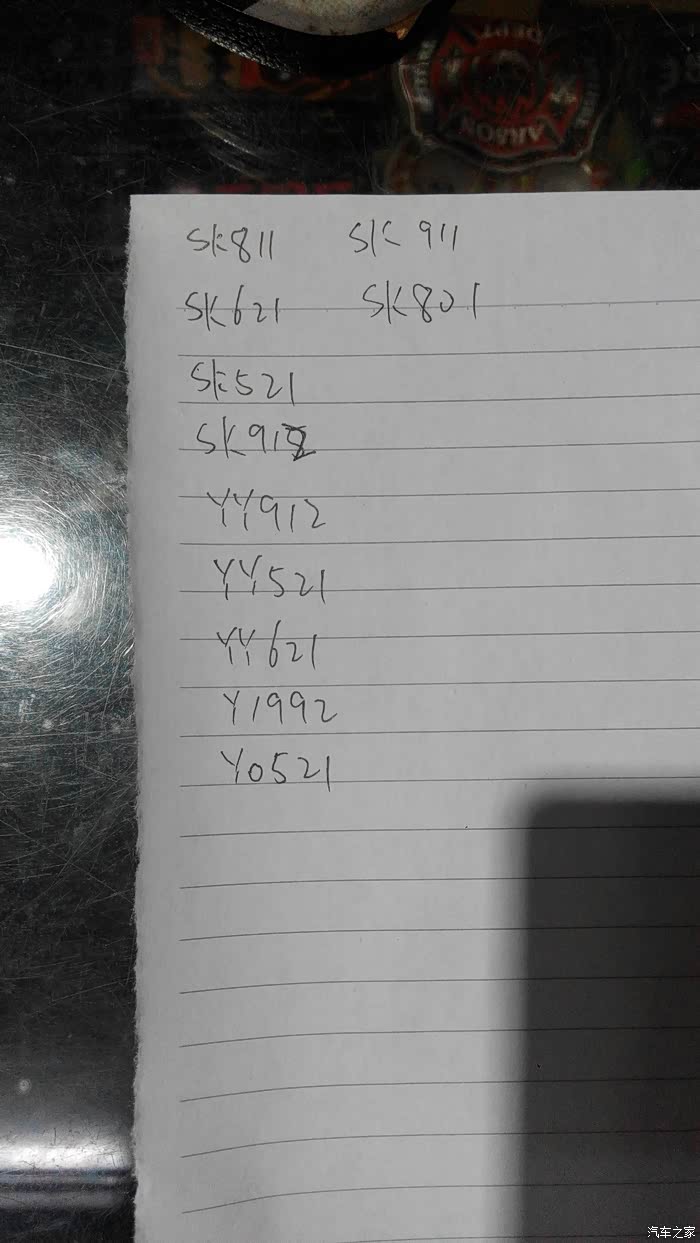 DEPT
SK811 SK911
SK621 SK801
SK521
SK912
YY912
YY521
YY621
Y1992
Y0521
汽车之家